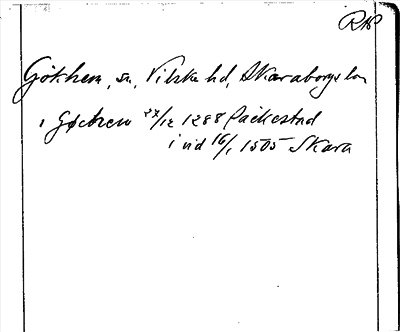 RAP
Gökhem, sn, Vilske hd, Skaraborgs län
i Gøchem 27/12 1288 Påckestad
i vid 16/1 1505 Skara